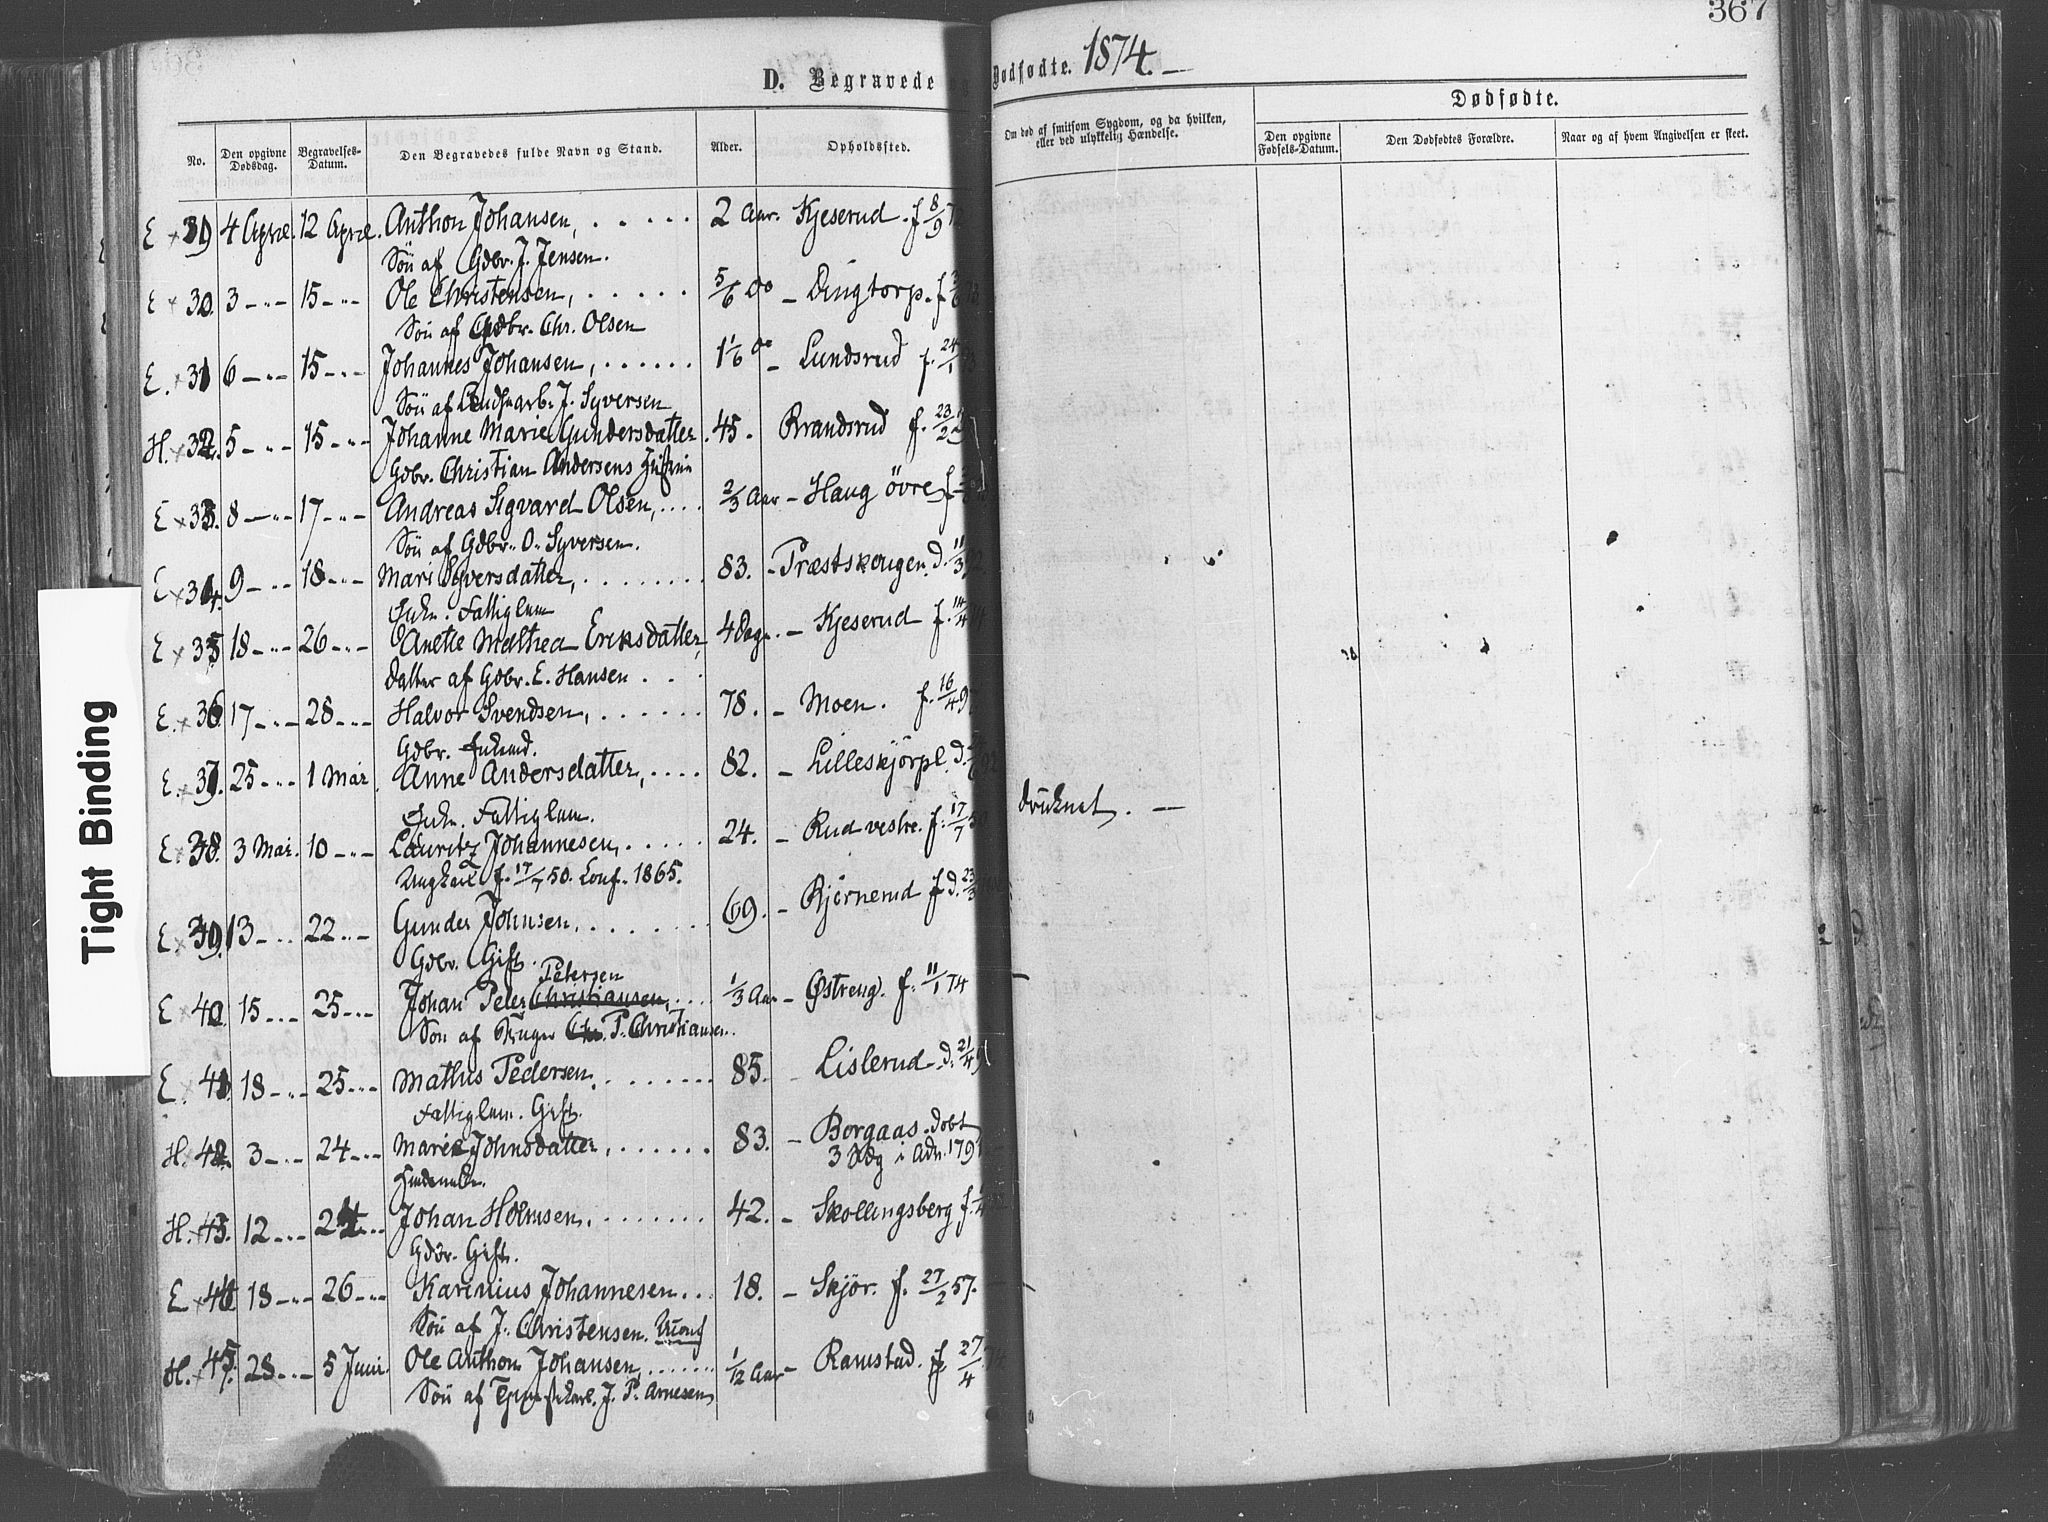 367
D. Begravede og Dødfødte. 1874. —
No.
Den opgivne Dødsdag.
Begravelses-Datum.
Den Begravedes fulde Navn og Stand.
Alder.
Opholdssted.
Om død af smitsom Sygdom, og da hvilken, eller ved ulykkelig Hændelse.
Dødfødte.
Den opgivne Fødsels-Datum.
Den Dødfødtes Forældre.
Naar og af hvem Angivelsen er skeet.
E × 4 April. 12 April. Anthon Johansen, . . . . . 2 Aar. Kjeserud. f 8/9 72
Søn af Gdbr. J. Jensen.
E × 30. 3 – „ – 15 – „ – Ole Christensen, . . . . . 5/6 Do – Dingtorp. f
Søn af Gdbr. Chr. Olsen
E. × 31 6 – „ – 15 – „ – Johannes Johansen, . . . . . . 1 1/6 Do – Lundsrud f. 24/1
Søn af J. Syversen
H. × 32. 5 – „ – 15 – „ – Johanne Marie Gundersdatter. 45. Brandsrud f. 23/2
Gdbr. Christian Andersens
E × 33. 8 – „ – 17 – „ – Andreas Sigvard Olsen, . . . . 2/3 Aar – Haug övre f
Søn af Gdbr. O. Syversen.
E × 34. 9 – „ – 18 – „ – Mari Syversdatter, . . . . . . . . 83. – Præstskougen. D. 11/3 92
Enke. Fattiglem
E × 35 18 – „ – 26 – „ – Anette Mathea Eriksdatter, 4 Dage. – Kjeserud f. 14/4 74
Datter af Gdbr. E. Hansen . . .
E. × 36 17 – „ – 28 – „ – Halvor Svendsen, . . . . . . 78. – Moen. f. 16/4 9
Gdbr. Enkemd.
E. × 37. 25 – „ – 1 Mai. Anne Andersdatter, . . . . 82. – Lilleskjörpl. D.
Enke. Fattiglem.
E. × 38. 3 Mai. 10 – „ – Lauritz Johannesen, . . . . . 24. – Rud vestre. f. 17/7 50 druknet. —
Ungkarl f. 17/7 50. Conf. 1865.
E × 39. 13 – „ – 22 – „ – Gunder Johnsen, . . . . . . . 69. – Bjørnerud f D. 23/3
Gdbr. Gift.
Petersen
E × 40. 15 – „ – 25 – „ – Johan Peter Christiansen, . . . . 1/3 Aar – Østreng. f. 11/1 74
Søn af Chr. P. Christiansen.
E × 41 18 – „ – 25 – „ – Mathis Pedersen, . . . . . . . . 85. – Lislerud – D. 21/4
Fattiglem. Gift.
H. × 42. 3 – „ – 24 – „ – Marie Johnsdatter, . . . . . . . 83. – Borgaas. Døbt
3 Sdg i Adv. 179
H. × 43. 12 – „ – 24 – „ – Johan Holmsen, . . . . . . . . 42. – Skollingsberg f.
Gdbr. Gift.
E × 44 18 – „ – 26 – „ – Karinius Johannesen . . 18. – Skjör. f. 27/2 57.
Søn af J. Christensen.
H. × 45. 28 – „ – 5 Juni. Ole Anthon Johansen, . . . . . . 1/12 Aar – Ramstad. f. 27/4 74
Søn af J. P. Arnesen
Tight Binding